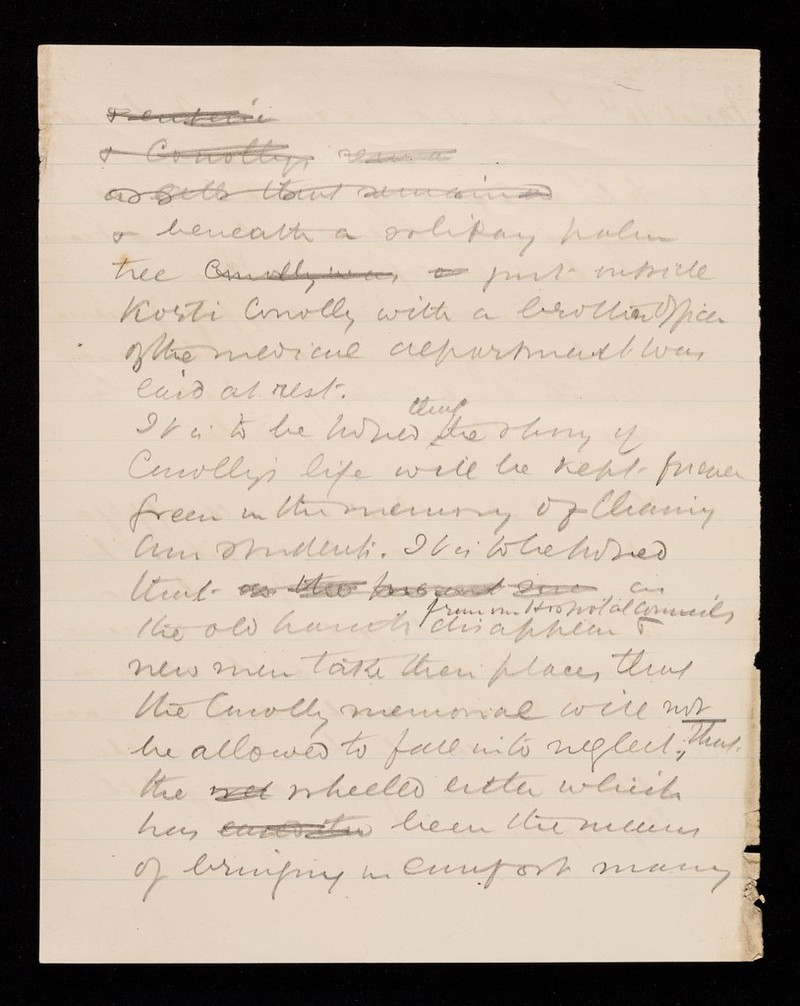 & Conolly's
as gells that remained
& beneath a solitary palm
tree Conolly was, a just outside
Korti Conolly with a brother officer
of the medical department was
laid at rest.
It is to be hoped that the story of
Conolly's life will be kept forever
green in the memory of Charing
Cross students. It is to be hoped
that as the present as
the old hands from our Hospital Councils disappear &
new men take their places, that
the Conolly memorial will not
be allowed to fall into neglect; that
the wheeled litter which
has been the means
of bringing in comfort many